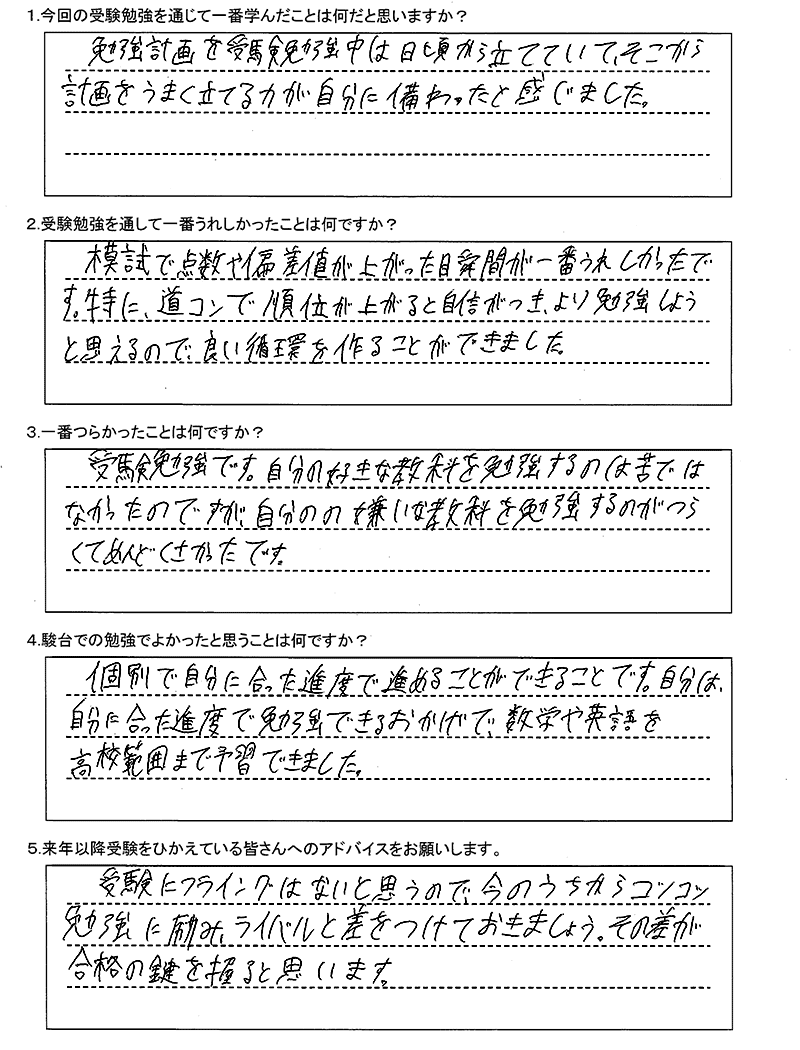 1.今回の受験勉強を通じて一番学んだことは何だと思いますか？
勉強計画を受験勉強中は日頃から立てていて、そこから
計画をうまく立てる力が自分に備わったと感じました。
2.受験勉強を通して一番うれしかったことは何ですか？
模試で点数や偏差値が上がった瞬間が一番うれしかったで
す。特に、道コンで順位が上がると自信がつき、より勉強しよう
と思えるので、良い循環を作ることができました。
3.一番つらかったことは何ですか？
受験勉強です。自分の好きな教科を勉強するのは苦では
なかったのですが、自分のの嫌いな教科を勉強するのがつら
くてめんどくさかったです。
4.駿台での勉強でよかったと思うことは何ですか？
個別で自分に合った進度で進めることができることです。自分は、
自分に合った進度で勉強できるおかげで、数学や英語を
高校範囲まで予習できました。
5.来年以降受験をひかえている皆さんへのアドバイスをお願いします。
受験にフライングはないと思うので、今のうちからコツコツ
勉強に励み、ライバルと差をつけておきましょう。その差が
合格の鍵を握ると思います。